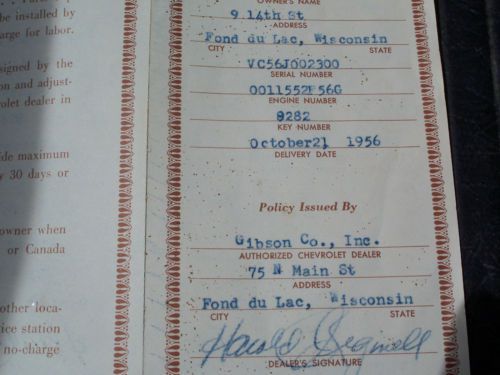 be installed by
arge for labor.
signed by the
on and adjust-
rolet dealer in
de maximum
y 30 days or
owner when
or Canada
other loca-
ice station
no-charge
OWNER'S NAME
9 14th St
ADDRESS
Fond du Lac, Wisconsin
CITY STATE
VC56J002300
SERIAL NUMBER
0011552F56G
ENGINE NUMBER
8282
KEY NUMBER
October21 1956
DELIVERY DATE
Policy Issued By
Gibson Co., Inc.
AUTHORIZED CHEVROLET DEALER
75 N Main St
ADDRESS
Fond du Lac, Wisconsin
CITY STATE
Harold
DEALER'S SIGNATURE